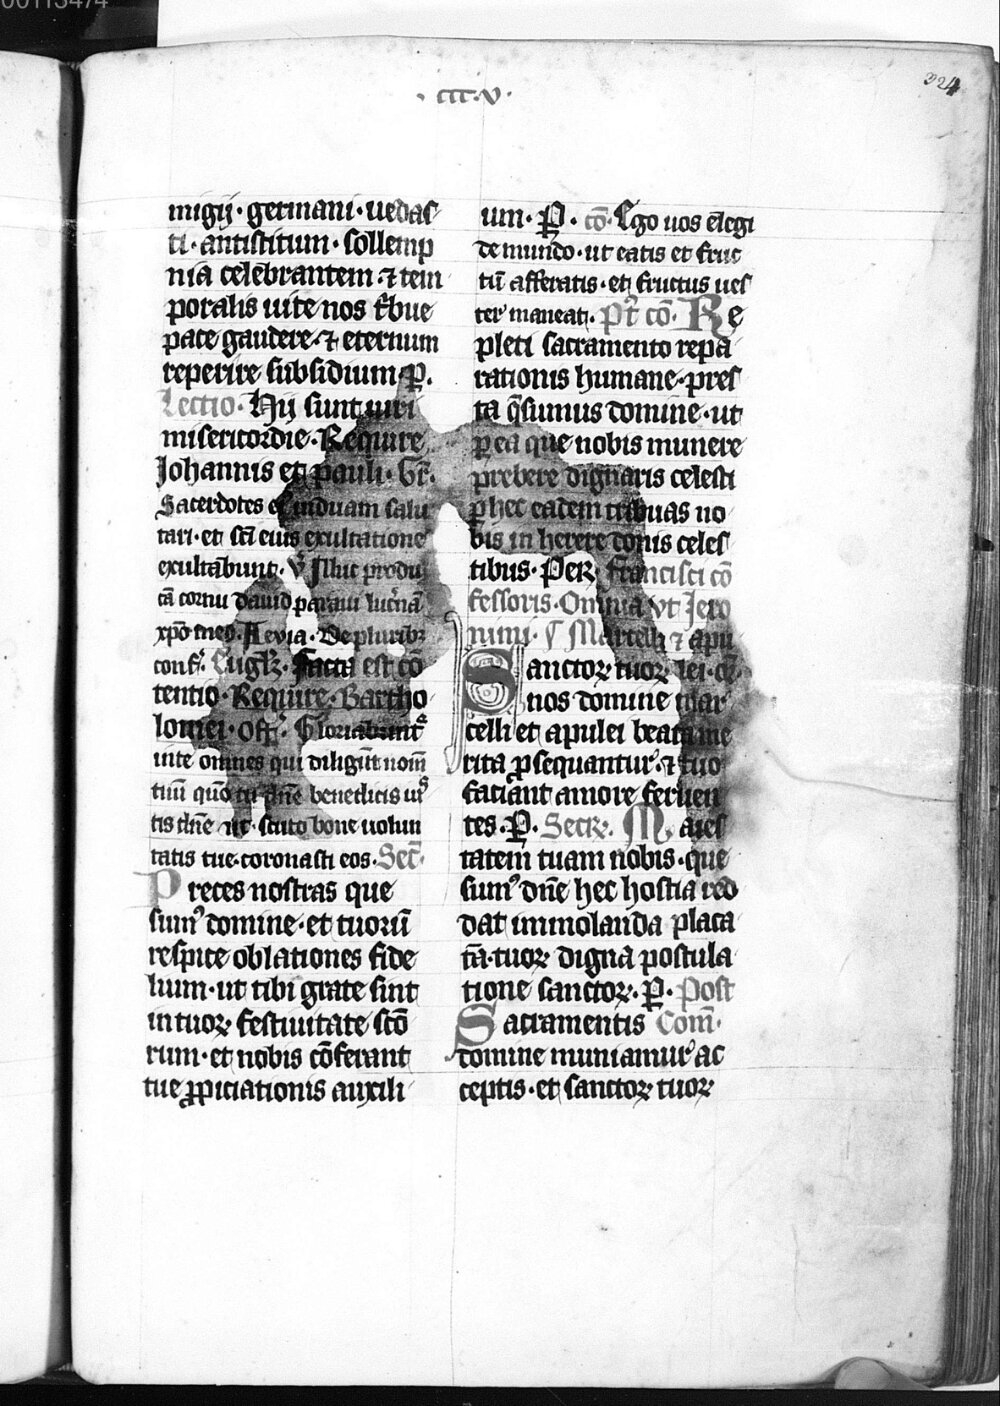 00113474
· ccc·v·
324
migij· germani· uedas
ti· antistitum· sollemp
nia celebrantem ⁊ tem
poralis uite nos tribue
pace gaudere· ⁊ eternum
reperire subsidium ꝑ.
Lectio· Hij sunt uiri
misericordie· Require
Johannis et pauli· Gr̄.
Sacerdotes ei induam salu
tari· et sc̄i eius exultatione
exultabunt· V̄ Illuc produ
cā cornu dauid paraui lucernā
xp̄o meo. Aevia· De pluribꝫ
conf. Euglꝫ. Facta est cō
tentio· Require· Bartho
lomei· Off. Gloriabunt̄
in te omnes qui diligūt nom̄
tuū quō tu dn̄e benedicis ius
tis dn̄e ut· scuto bone uolun
tatis tue· coronasti eos· Sec̄.
Preces nostras que
sum᾽ domine· et tuorū
respice oblationes fide
lium· ut tibi grate sint
in tuoꝝ festiuitate sc̄o
rum· et nobis cōferant
tue ꝓpiciationis auxili
um· ꝑ· cō· Ego uos elegi
de mundo· ut eatis et fruc
tū afferatis· et fructus ues
ter maneat. Pt̄ cō. Re
pleti sacramento repa
rationis humane· pres
ta q̄sumus domine· ut
per ea que nobis munere
prebere dignaris celesti
ꝑ hec eadem tribuas no
bis in herere donis celes
tibus· Per. Francisci cō
fessoris· Omnia ut Jero
nimi· Marcelli ⁊ apu
Sanctoꝝ tuoꝝ lei·
nos domine mar
celli et apulei beata me
rita ꝓsequantur· ⁊ tuo
faciant amore feruen
tes. ꝑ. Secrꝫ. Maies
tatem tuam nobis· que
sum᾽ dn̄e hec hostia red
dat immolanda placa
tā· tuoꝝ digna postula
tione sanctoꝝ. ꝑ· Post
Sacramentis Com̄·
domine muniamur ac
ceptis· et sanctoꝝ tuoꝝ